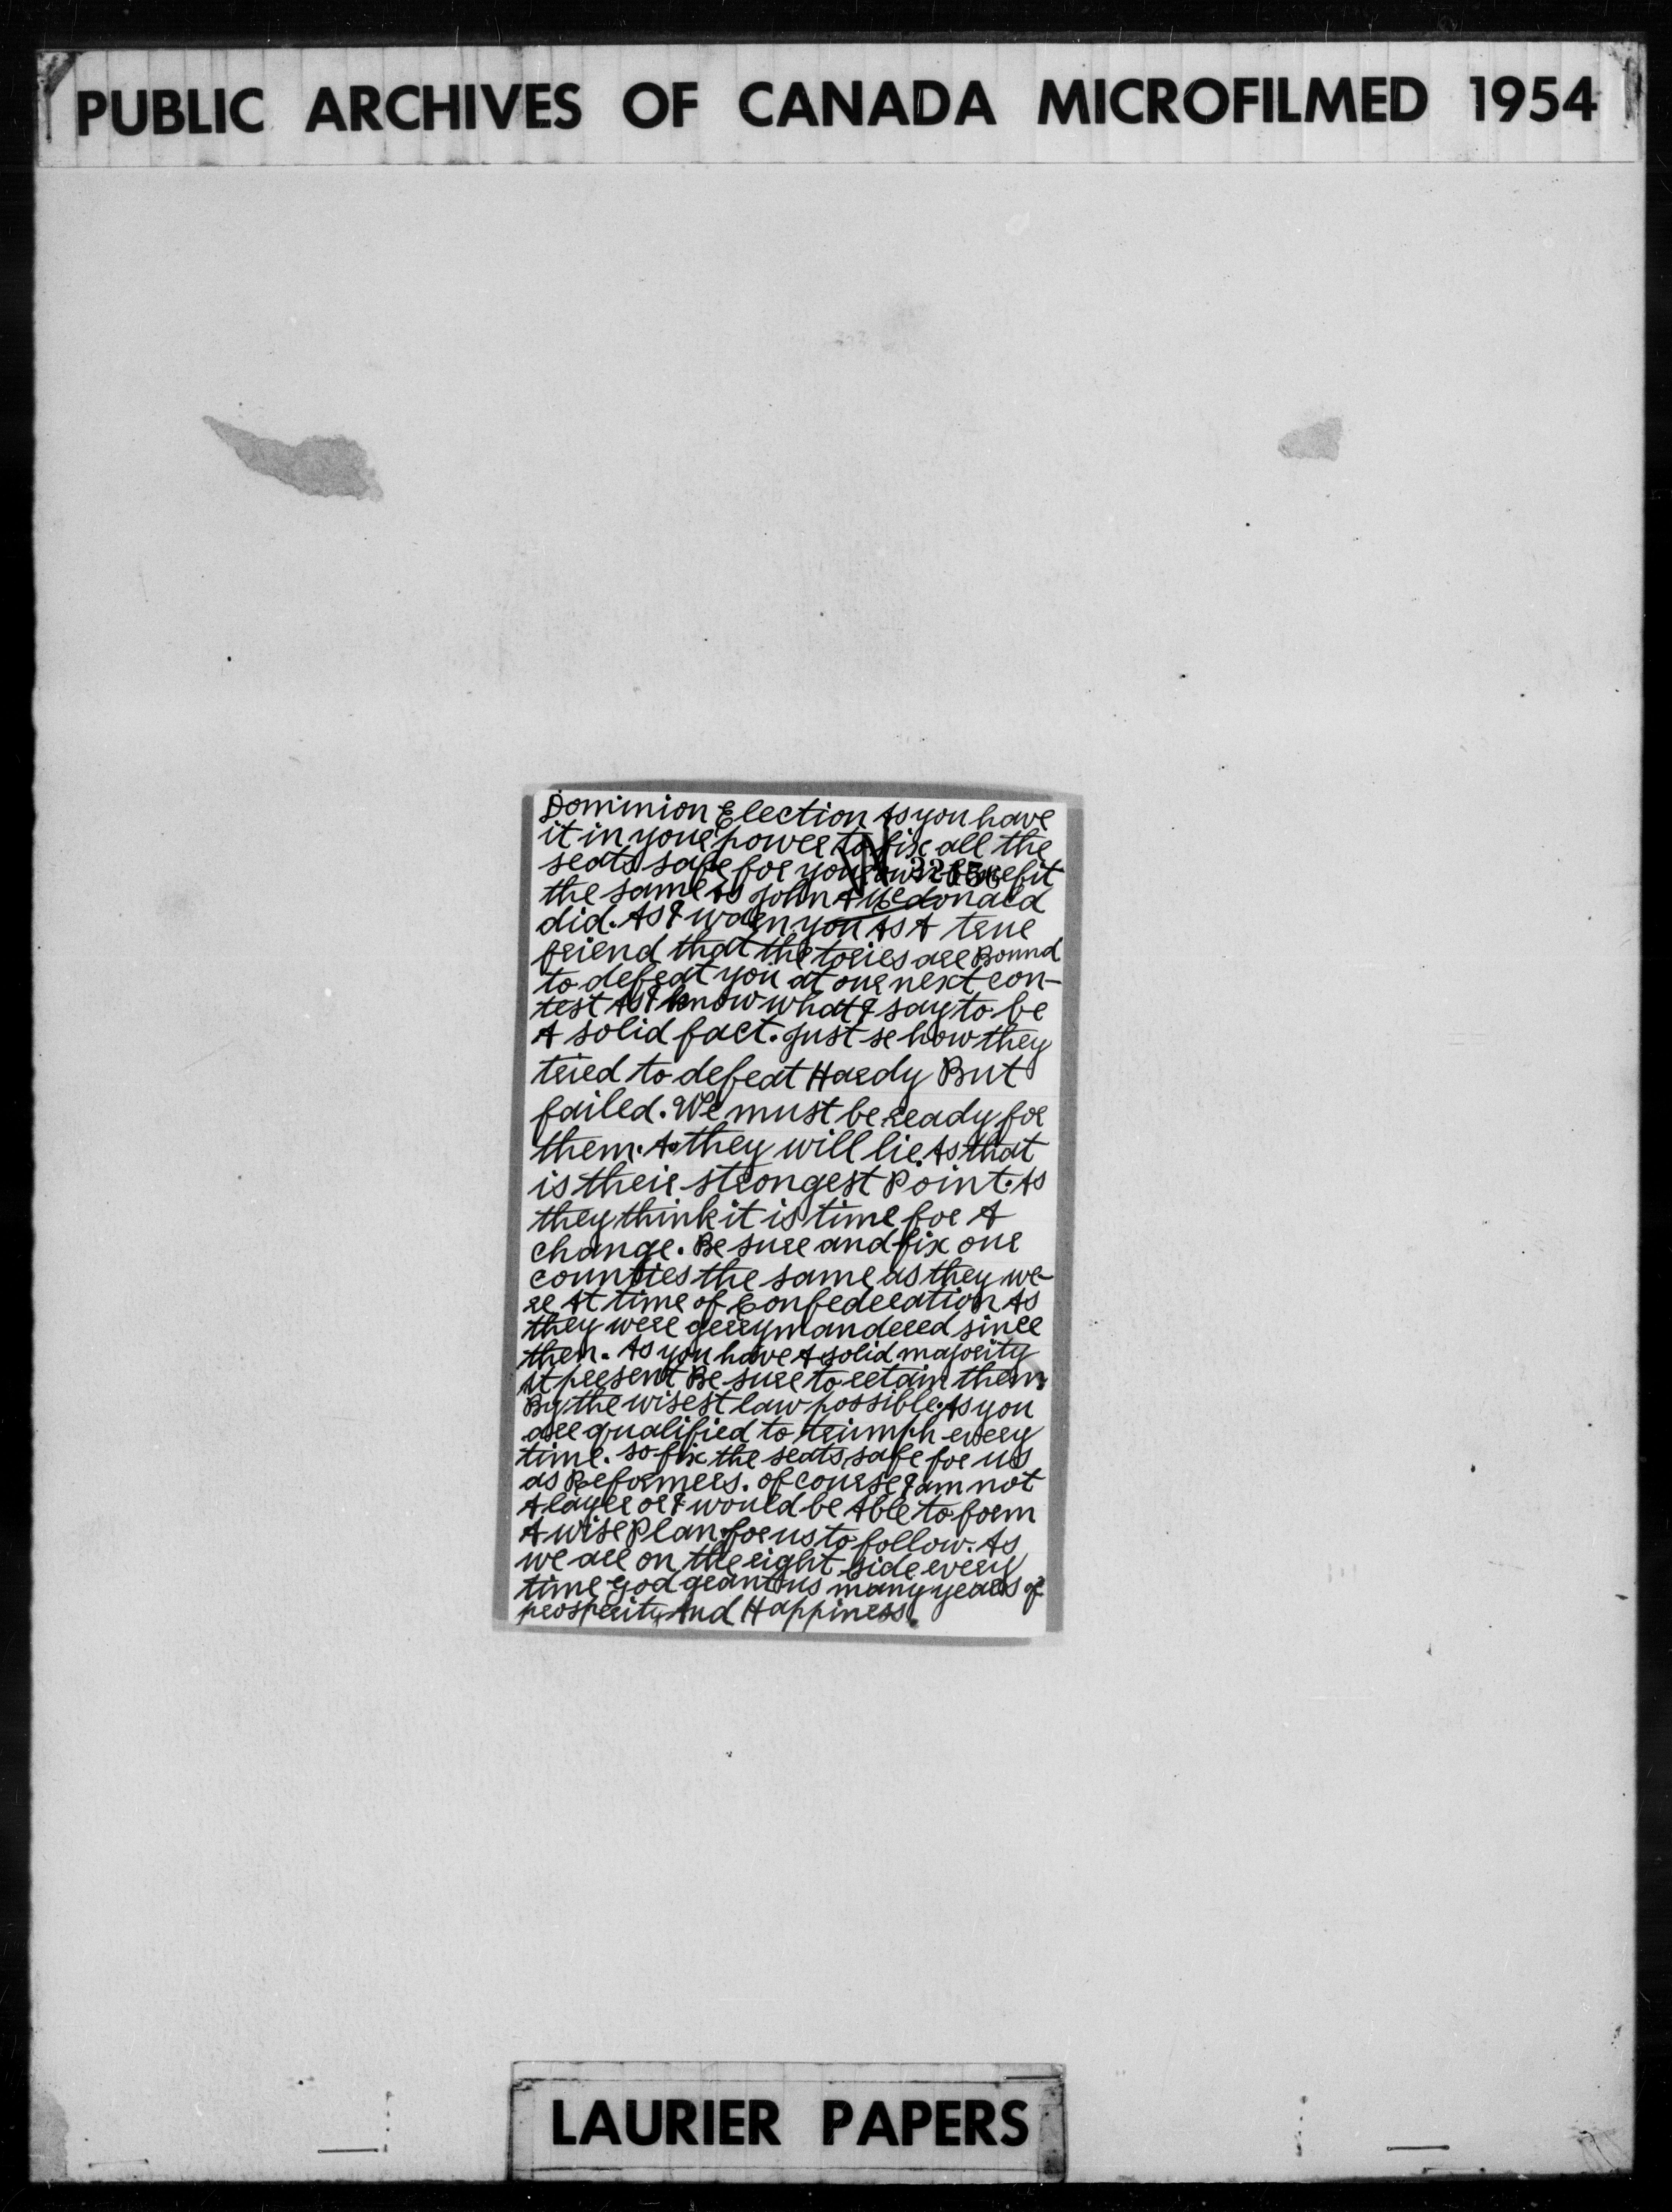 PUBLIC ARCHIVES OF CANADA MICROFILMED 1954
Dominion Election As you have
it in your power to fix all the
seats safe for your own benefit
the same as John A Mcdonald
did. As I warn you As A true
friend that the tories are Bound
to defeat you at our next con-
test As I know what I say to be
A solid fact. Just se how they
tried to defeat Hardy But
failed. We must be ready for
them. As they will lie. As that
is their strongest Point. As
they think it is time for A
change. Be sure and fix our
counties the same as they we-
re At time of Confederation As
they were gerrymandered since
then. As you have A solid majority
At present Be sure to retain them
By the wisest law possible. As you
are qualified to triumph every
time. so fix the seats safe for us
as Reformers. of course I am not
A layer or I would be Able to form
A wise Plan for us to follow. As
we are on the right side every
time God grant us many years of
prosperity And Happiness.
LAURIER PAPERS